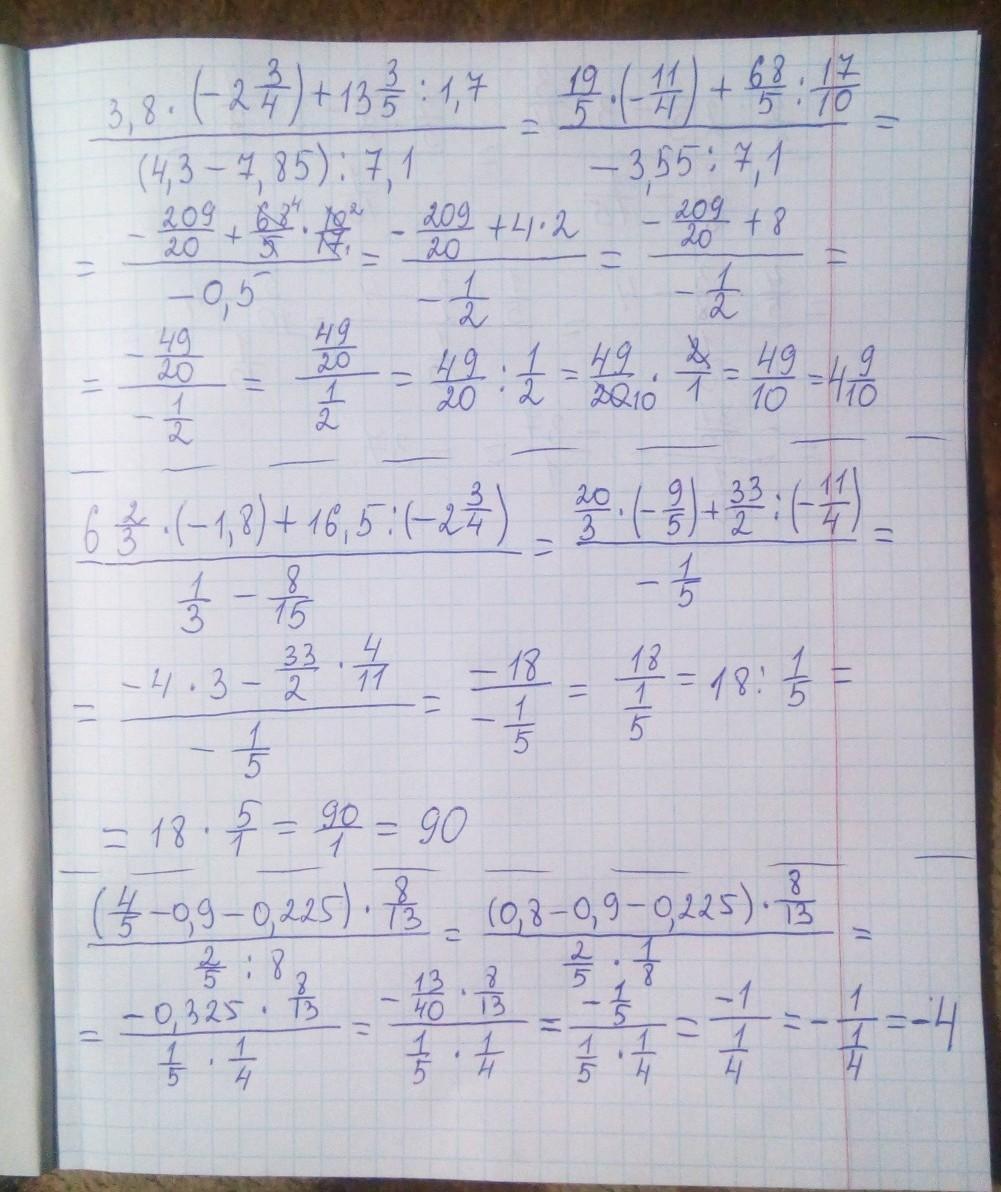 (3,8 · (-2 3/4) + 13 3/5 : 1,7) / ((4,3 - 7,85) : 7,1) = (19/5 · (-11/4) + 68/5 : 17/10) / (-3,55 : 7,1) =
= (-209/20 + 68 4/5 · 10 2/17 1) / (-0,5) = (-209/20 + 4 · 2) / (-1/2) = (-209/20 + 8) / (-1/2) =
= (-49/20) / (-1/2) = (49/20) / (1/2) = 49/20 : 1/2 = 49/20 10 · 2/1 = 49/10 = 4 9/10
(6 2/3 · (-1,8) + 16,5 : (-2 3/4)) / (1/3 - 8/15) = (20/3 · (-9/5) + 33/2 : (-11/4)) / (-1/5) =
= (-4 · 3 - 33/2 · 4/11) / (-1/5) = (-18) / (-1/5) = 18 / (1/5) = 18 : 1/5 =
= 18 · 5/1 = 90/1 = 90
((4/5 - 0,9 - 0,225) · 8/13) / (2/5 : 8) = ((0,8 - 0,9 - 0,225) · 8/13) / (2/5 · 1/8) =
= (-0,325 · 8/13) / (1/5 · 1/4) = (-13/40 · 8/13) / (1/5 · 1/4) = (-1/5) / (1/5 · 1/4) = (-1) / (1/4) = - 1 / (1/4) = -4